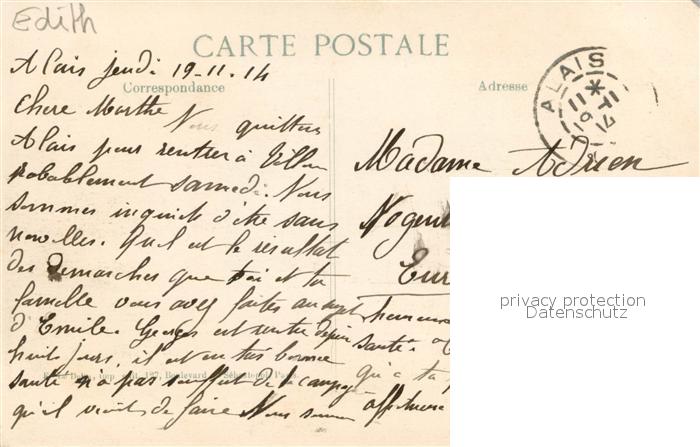 Edith
CARTE POSTALE
Alais jeudi 19-11-14
Correspondance
Adresse
ALAIS
Chère Marthe
Nous quittons
Alais pour rentrer à
probablement samedi. Nous
sommes inquiets d'être sans
nouvelles. Quel est le résultat
des démarches que toi et ta
famille vous avez faites au sujet
d'Emile. Georges est rentré depuis
huit jours, il est en très bonne
santé n'a pas souffert de la campagne
qu'il vient de faire Nous sommes
Madame Adrien
Nogent
Eur
heureux
santé
qui a ta
affectueuse
privacy protection
Datenschutz